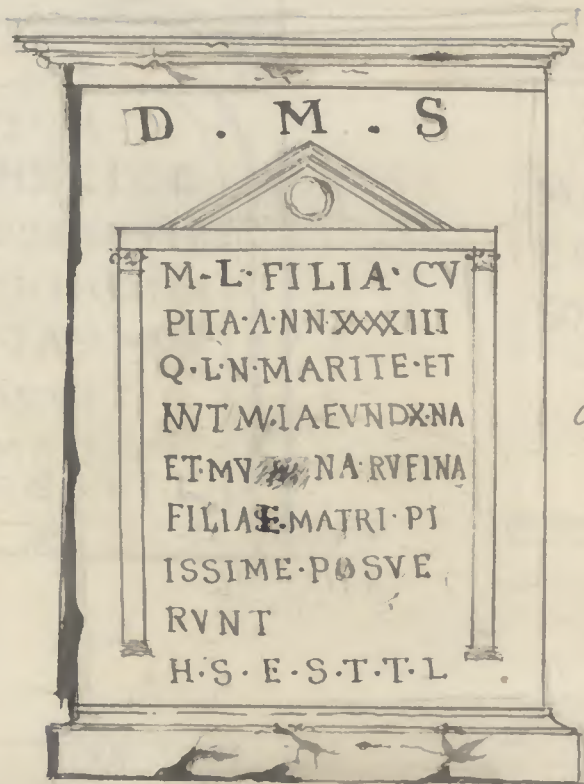 D . M . S
M-L· FILIA· CV
PITA·Λ·NN·XXXXIII
Q·L·N·MARITE·ET
ET·MV NA·RVFINA
FILIAE·MATRI·PI
ISSIME·POSVE
RVNT
H·S·E·S·T·T·L